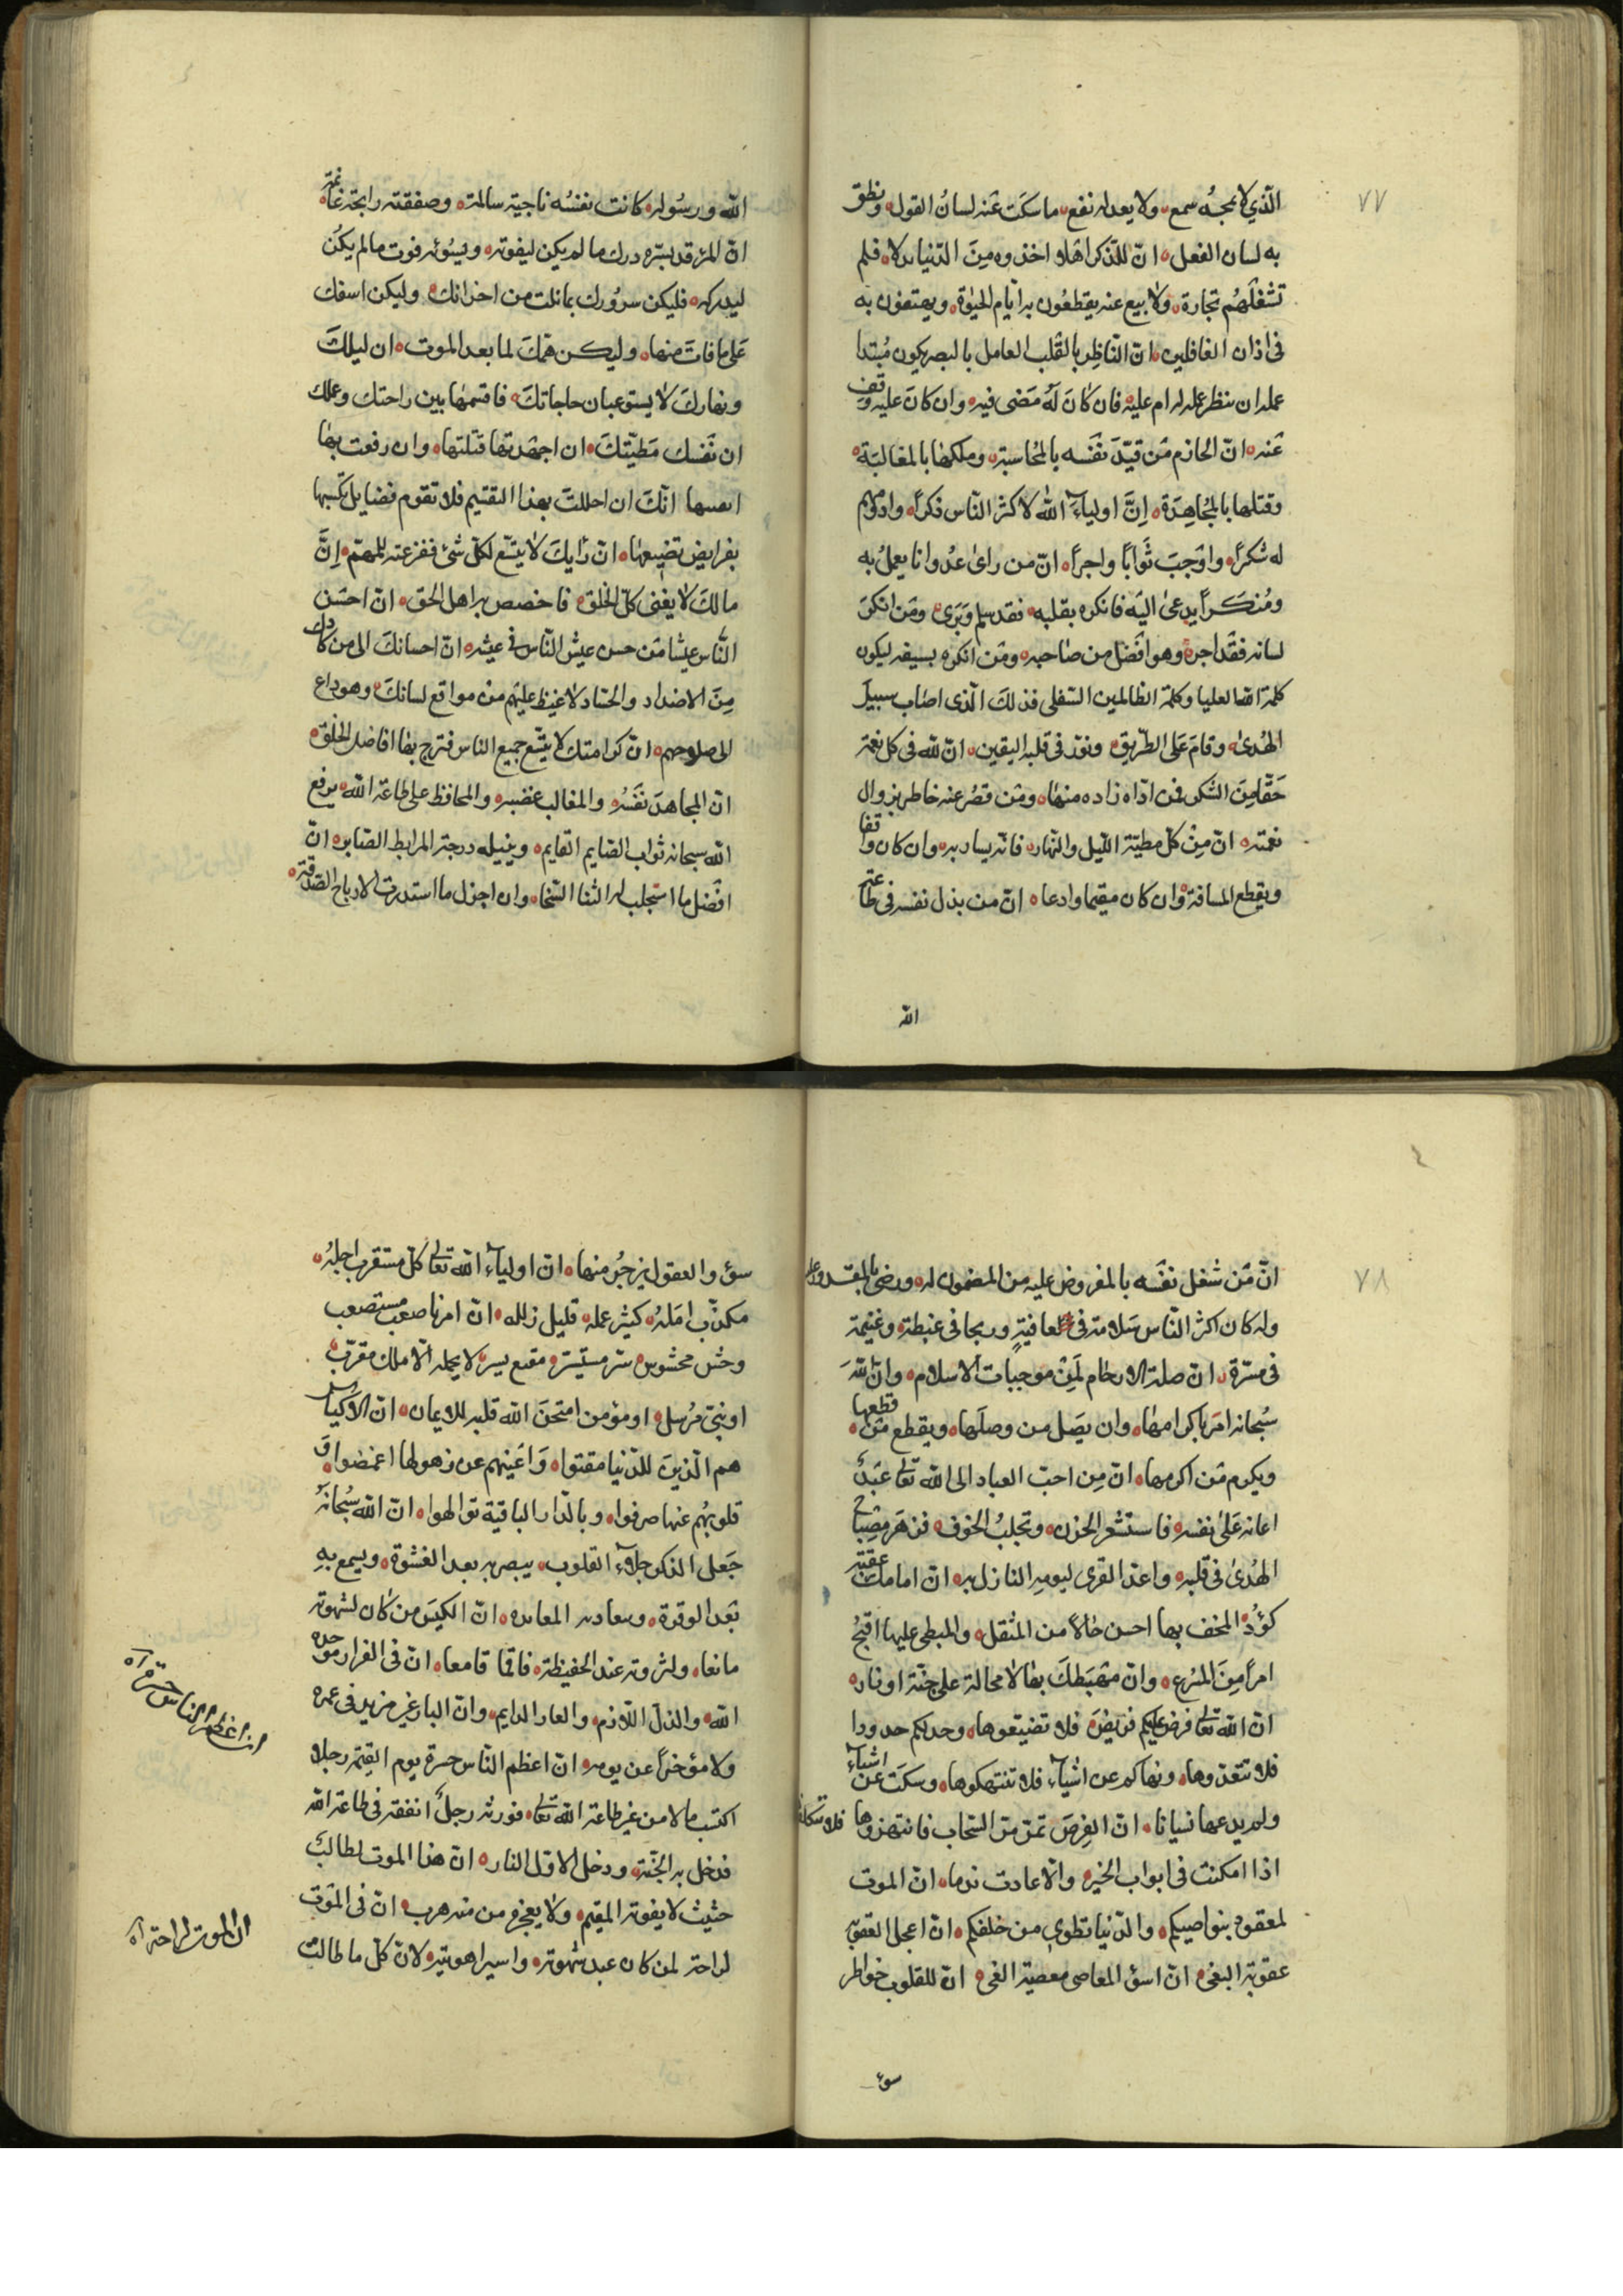 ٧٧
الّذي لا يمجّه سمع ولا يعدله نفع ما سكت عنه لسان القول ونطق
به لسان الفعل انّ للذّكر اهلا اخذوه من الدّنيا بدلا فلم
تشغلهم تجارة ولا بيع عنه يقطعون به ايّام الحيوة ويهتفون به
فى اذان الغافلين انّ النّاظر بالقلب العامل بالبصر يكون مبتدا
عمله ان ينظر عمله له ام عليه فان كان له مضى فيه وان كان عليه وقف
عنه انّ الحازم من قيّد نفسه بالمحاسبة وملكها بالمغالبة
وقتلها بالمجاهدة إنّ اولياء الله لاكثر النّاس ذكراً وادومهم
له شكراً واوجب ثواباً واجراً انّ من راى عدوانا يعمل به
ومنكراً يدعى اليه فانكره بقلبه فقد سلم وبرى ومن انكر
لسانه فقد اجر وهو افضل من صاحبه ومن انكره بسيفه ليكون
كلمة الله العليا وكلمة الظالمين السّفلى فذلك الّذى اصاب سبيل
الهدى وقام على الطّريق ونوّر فى قلبه اليقين انّ لله فى كل نعمة
حقّا من الشّكر فمن ادّاه زاده منها ومن قصّر عنه خاطر بزوال
نعمته انّ من كان مطيّته اللّيل والنّهار فانّه يسار به وان كان واقفا
ويقطع المسافة وان كان مقيما وادعا انّ من بذل نفسه فى طاعة
الله
الله ورسوله كانت نفسه ناجية سالمة وصفقته رابحة غانمة
انّ المرء قد يسّره درك ما لم يكن ليفوته ويسوئه فوت ما لم يكن
ليدركه فليكن سرورك بما نلت من اخرانك وليكن اسفك
على ما فات منها وليكن همّك لما بعد الموت ان ليلك
ونهارك لا يستوعبان حاجاتك فاقسمها بين راحتك وعملك
ان نفسك مطيّتك ان اجهدتها قتلتها وان رفعت بها
ابقيتها انّك ان احللت بهذا التقسيم فلا تقوم فضايل تكسبها
بفرايض تضيعها انّ رأيك لا يتّسع لكلّ شئ ففرغته للمهمّ إنّ
مالك لا يغنى كلّ الخلق فاخصص به اهل الحق انّ احسن
النّاس عيشا من حسن عيش النّاس فى عيشه انّ احسانك الى من كادك
من الاضداد والحسّاد لاغيظ عليهم من مواقع لسانك وهو داع
الى صلاحهم انّ كرامتك لا يتّسع جميع الناس فترح بها افاضل الخلق
انّ المجاهد نفسه والمغالب غضبه والمحافظ على طاعة الله يرفع
الله سبحانه ثواب الصّايم القايم وينيله درجة المرابط الصّابر انّ
افضل ما استجلب له الثنا السّخا وان اجزل ما استدرت الارباح الصّدقة
٧٨
انّ من شغل نفسه بالمفروض عليه من المضمون له ورضى بالمقدور عليه
وله كان اكثر النّاس سلامة فى عافية وربحا فى غبطة وغنيمة
فى مسرّة انّ صلة الارحام لمن موجبات الاسلام وانّ الله
سبحانه امر باكرامها وان يصل من وصلها ويقطع من قطعها
ويكرم من اكرمها انّ من احبّ العباد الى الله تعالى عبداً
اعانه على نفسه فاستشعر الحزن وتجلبب الخوف فزهر مصباح
الهدى فى قلبه واعدّ القرى ليومه النازل به انّ امامك عقبة
كؤد المخف بها احسن حالاً من المثقل والمبطى عليها اقبح
امراً من المسرع وانّ مهبطك بها لا محالة على جنّة او نار
انّ الله تعالى فرض عليكم فرايض فلا تضيّعوها وحدّ لكم حدودا
فلا تتعدّوها ونهاكم عن اشياء فلا تنتهكوها وسكت عن اشياء
ولم يدعها نسيانا فلا تتكلفوها انّ الفرص تمرّ مرّ السّحاب فانتهزوها
اذا امكنت فى ابواب الخير والّا عادت ندما انّ الموت
لمعقود بنواصيكم والدّنيا تطوى من خلفكم انّ اعجل العقوبة
عقوبة البغى انّ اسؤ المعاصى معصية الغى انّ للقلوب خواطر
سوء
سوء والعقول يزجر منها انّ اولياء الله تعالى كلّ مستقرب اجله
مكذّب امله كثير عمله قليل زلله انّ امرنا صعب مستصعب
وخشن مخشوشن سرّ مستسرّ مقنع بسرّ لا يحمله الّا ملك مقرّب
او نبىّ مرسل او مؤمن امتحن الله قلبه للايمان انّ الاكياس
هم الّذين للدّنيا مقتوا واعينهم عن زهرتها اغمضوا و
قلوبهم عنها صرفوا وبالدّار الباقية تولّهوا انّ الله سبحانه
جعل الذكر جلاء القلوب يبصر به بعد الغشوة ويسمع به
بعد الوقرة وينقاد به المعانده انّ الكيّس من كان لشهوته
مانعا ولثروته عند الحفيظة قامعا انّ فى الفرار موجدة
الله والذلّ اللّازم والعار الدايم وانّ الفار غير مزيد فى عمره
ولا مؤخراً عن يومه انّ اعظم النّاس حسرة يوم القيمة رجلا
اكتسب مالا من غير طاعة الله تعالى فورثه رجلٌ انفقه فى طاعة الله
فدخل به الجنّة ودخل الاوّل النار انّ هذا الموت لطالبٌ
حثيث لا يفوته المقيم ولا يعجزه من هرب انّ فى الموت
لراحة لمن كان عبد شهوته واسير اهويته لانّ كلّ ما طالت
ان اعظم الناس حسرة اه
ان الموت لراحة اه